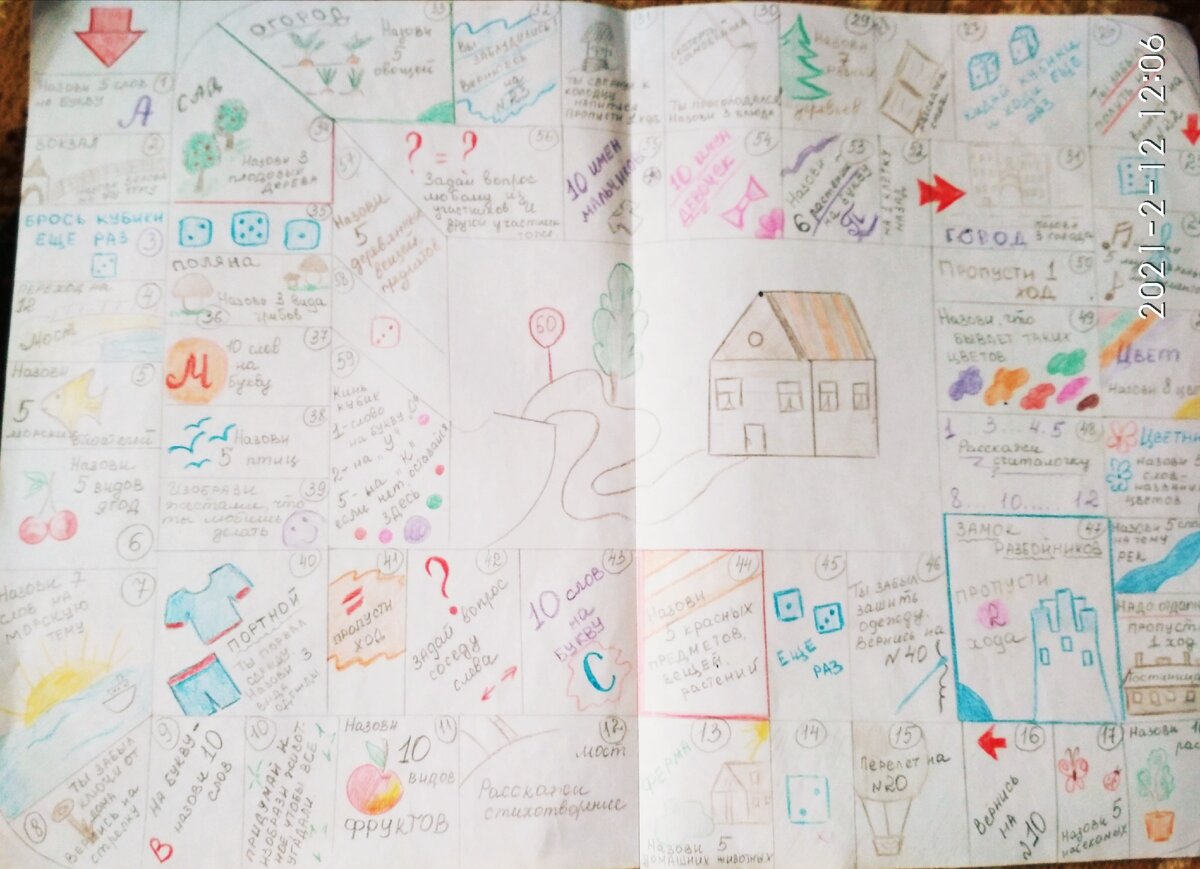 Назови 5 слов
на букву
1
А
ВОКЗАЛ
2
БРОСЬ КУБИКИ
ЕЩЕ РАЗ
3
ПЕРЕХОД НА
12
4
МОСТ
Назови
5
5
морских
6
Назови
5 видов
ягод
7
Назови 7
слов на
морскую
тему
8
Ты забыл
ключи от
дома
вернись на
стрелку
9
НА БУКВУ-
назови 10
слов
В
10
ПРИДУМАЙ И
ИЗОБРАЗИ ЖИВОТ-
НОЕ, ЧТОБЫ ВСЕ
УГАДАЛИ
11
Назови
10
видов
ФРУКТОВ
12
МОСТ
Расскажи
стихотворение
13
ФЕРМА
Назови 5
домашних животных
14
15
Перелет на
№20
16
ВЕРНИСЬ
НА
№10
17
Назови 5
насекомых
Назови
Надо отдохнуть
пропусти
1 ход
Гостиница
Назови 5 слов
на тему
рек
ЦВЕТНИК
назови 5
слов-
названий
цветов
ЦВЕТ
Назови 8
5
КИДАЙ КУБИКИ
И ХОДИ ЕЩЕ
РАЗ
29
Назови
7
деревьев
30
СКАТЕРТЬ
САМОБРАНКА
Ты проголодался
Назови 3 блюда
31
Ты сходил к
колодцу
напиться
пропусти 1 ход
32
ВЫ
ЗАБЛУДИЛИСЬ
ВЕРНИТЕСЬ
НА
№23
33
ОГОРОД
Назови
5
овощей
САД
Назови 3
плодовых
дерева
35
ПОЛЯНА
Назови 3 вида
грибов
36
37
М
10 слов
на
букву
38
Назови
5 птиц
39
Изобрази
жестами, что
ты любишь
делать
40
ПОРТНОЙ
ТЫ ПОРВАЛ
ОДЕЖДУ
НАЗОВИ 3
ВИДА
ОДЕЖДЫ
41
ПРОПУСТИ
ХОД
42
?
ЗАДАЙ ВОПРОС
СОСЕДУ
СЛЕВА
43
10 слов
на
БУКВУ
С
44
Назови
5 красных
предметов,
вещей,
растений
45
ЕЩЕ
РАЗ
46
Ты забыл
зашить
одежду.
Вернись на
№40
47
ЗАМОК
РАЗБОЙНИКОВ
ПРОПУСТИ
2
хода
48
1 3... 4.5
Расскажи
считалочку
8. 10.... 12
49
Назови, что
бывает таких
цветов
50
Пропусти 1
ход
51
ГОРОД
назови
3 города
52
на 1 клетку
назад
53
Назови
6 растений
на букву
54
10 ИМЕН
ДЕВОЧЕК
55
10 ИМЕН
МАЛЬЧИКОВ
56
? = ?
Задай вопрос
любому из
участников и
другой участник
тоже
57
Назови
5
деревянных
вещей,
предметов
58
59
Кинь
кубик
1-слово
на букву "О"
2-на "У"
5-на "К"
если нет, оставайся
здесь
60
2021-2-12 12:06